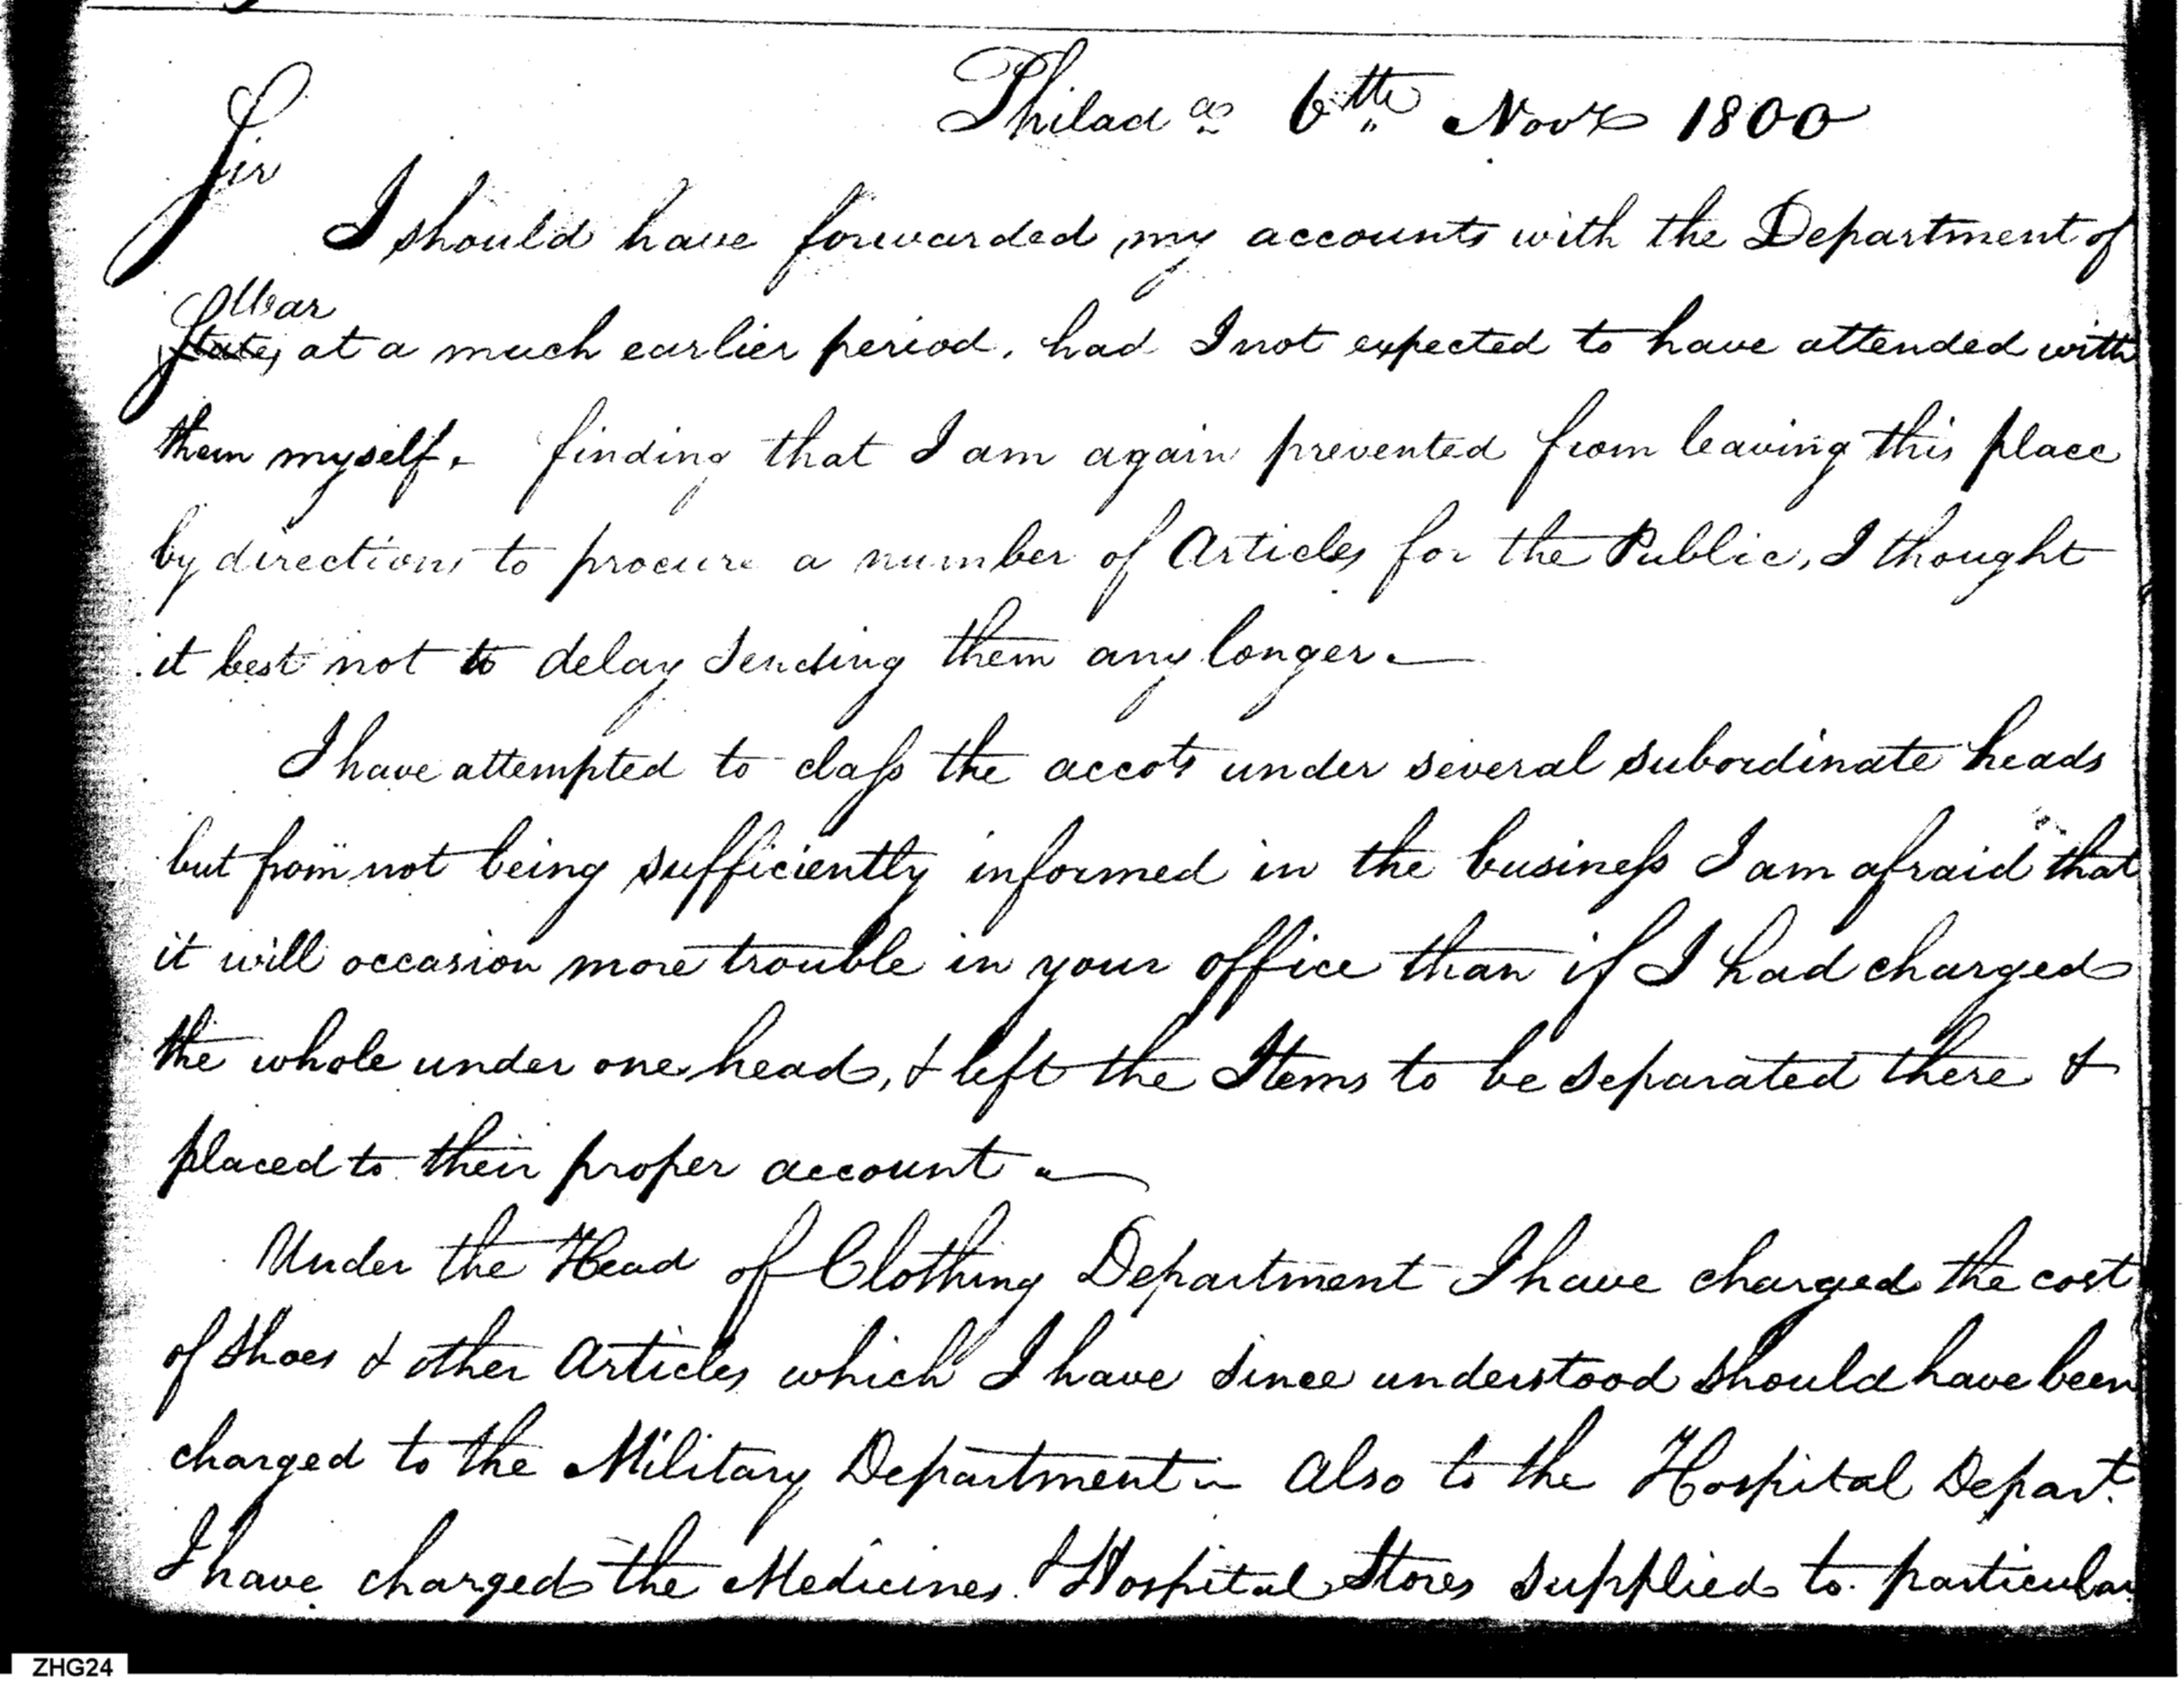 Philad a 6th Novr 1800
Sir
I should have forwarded my accounts with the Department of
War
State, at a much earlier period, had I not expected to have attended with
them myself. finding that I am again prevented from leaving this place
by directions to procure a number of Articles for the Public, I thought
it best not to delay sending them any longer. —
I have attempted to class the accots under several subordinate heads
but from not being sufficiently informed in the business I am afraid that
it will occasion more trouble in your office than if I had charged
the whole under one head, & left the Items to be separated there &
placed to their proper account —
Under the Head of Clothing Department I have charged the cost
of Shoes & other Articles which I have since understood should have been
charged to the Military Department — Also to the Hospital Depart.
I have charged the Medicines & Hospital Stores supplied to particular
ZHG24